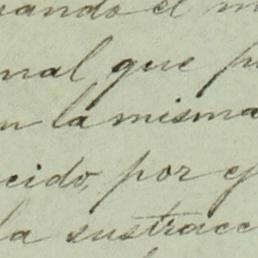 uando el m
nal que p
n la misma
cido, por ej
la sustracc